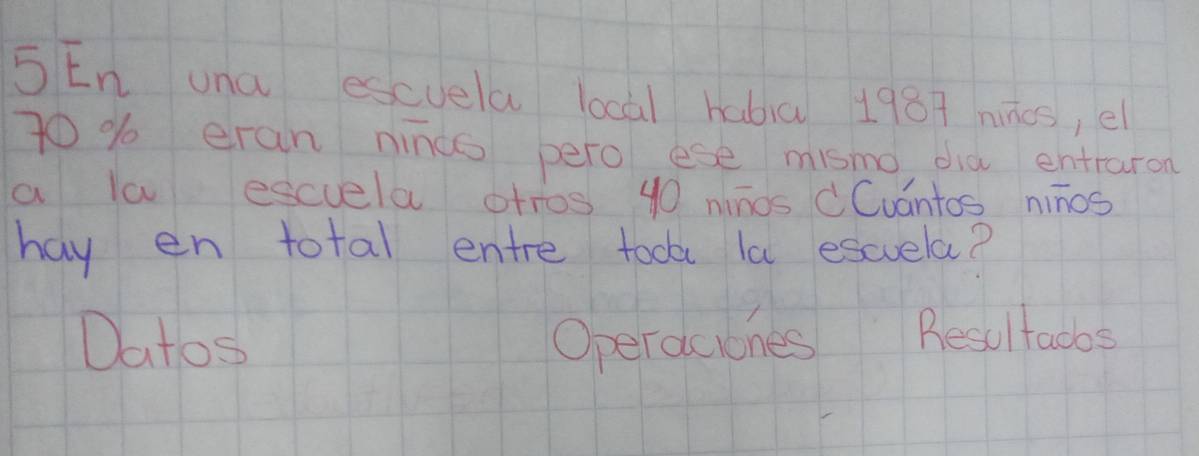 5 En una escuela local habia 1987 niños, el
70% eran niñas pero ese mismo dia entraron
a la escuela otros 40 niños ¿Cuántos niños
hay en total entre toda la escuela?
Datos Operaciónes Resultados